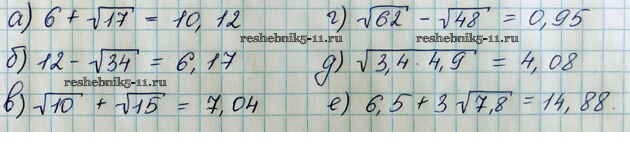 а) 6 + √17 = 10,12
б) 12 - √34 = 6,17
в) √10 + √15 = 7,04
г) √62 - √48 = 0,95
д) √3,4 · 4,9 = 4,08
е) 6,5 + 3√7,8 = 14,88.
reshebnik5-11.ru
reshebnik5-11.ru
reshebnik5-11.ru